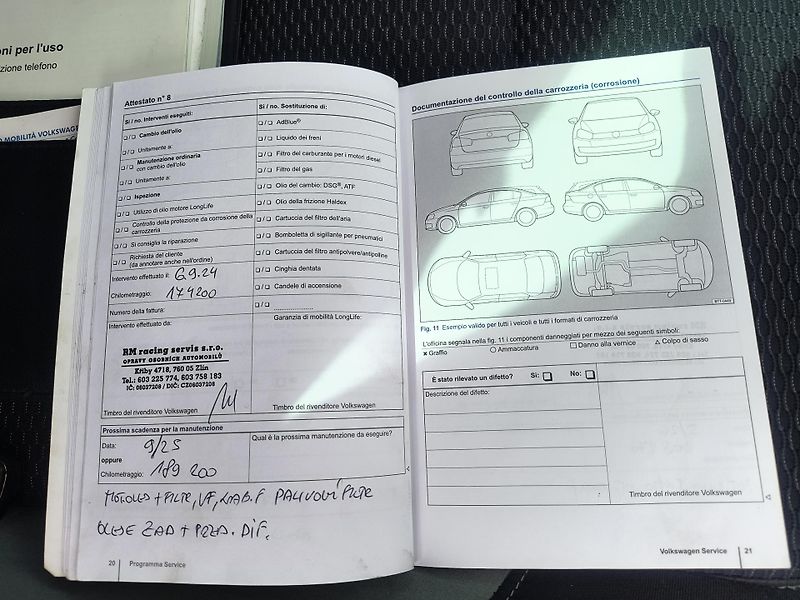 ni per l'uso
zione telefono
MOBILITÀ VOLKSWAGE
Attestato n° 8
Sì / no. Interventi eseguiti:
/ Cambio dell'olio
/ Unitamente a:
/ Manutenzione ordinaria
con cambio dell'olio
/ Unitamente a:
/ Ispezione
/ Utilizzo di olio motore LongLife
/ Controllo della protezione da corrosione della
carrozzeria
/ Si consiglia la riparazione
/ Richiesta del cliente
(da annotare anche nell'ordine)
Intervento effettuato il: 6.9.24
Chilometraggio: 174200
Numero della fattura:
Intervento effettuato da:
RM racing servis s.r.o.
OPRAVY OSOBNÍCH AUTOMOBILŮ
Křiby 4718, 760 05 Zlín
Tel.: 603 225 774, 603 758 183
IČ: 06037208 / DIČ: CZ06037208
Timbro del rivenditore Volkswagen
Sì / no. Sostituzione di:
/ AdBlue®
/ Liquido dei freni
/ Filtro del carburante per i motori diesel
/ Filtro del gas
/ Olio del cambio: DSG®, ATF
/ Olio della frizione Haldex
/ Cartuccia del filtro dell'aria
/ Bomboletta di sigillante per pneumatici
/ Cartuccia del filtro antipolvere/antipolline
/ Cinghia dentata
/ Candele di accensione
/ ....................
Garanzia di mobilità LongLife:
Timbro del rivenditore Volkswagen
Prossima scadenza per la manutenzione
Data: 9/25
oppure
Chilometraggio: 189 200
Qual è la prossima manutenzione da eseguire?
MOTOLEJ + FILTR, VF, KAB.F PALIVOVÝ FILTR
OLEJE ZAD + PŘED. DIF.
20 Programma Service
Documentazione del controllo della carrozzeria (corrosione)
Fig. 11 Esempio valido per tutti i veicoli e tutti i formati di carrozzeria
L'officina segnala nella fig. 11 i componenti danneggiati per mezzo dei seguenti simboli:
× Graffio ○ Ammaccatura □ Danno alla vernice △ Colpo di sasso
È stato rilevato un difetto? Sì: No:
Descrizione del difetto:
Timbro del rivenditore Volkswagen
Volkswagen Service 21